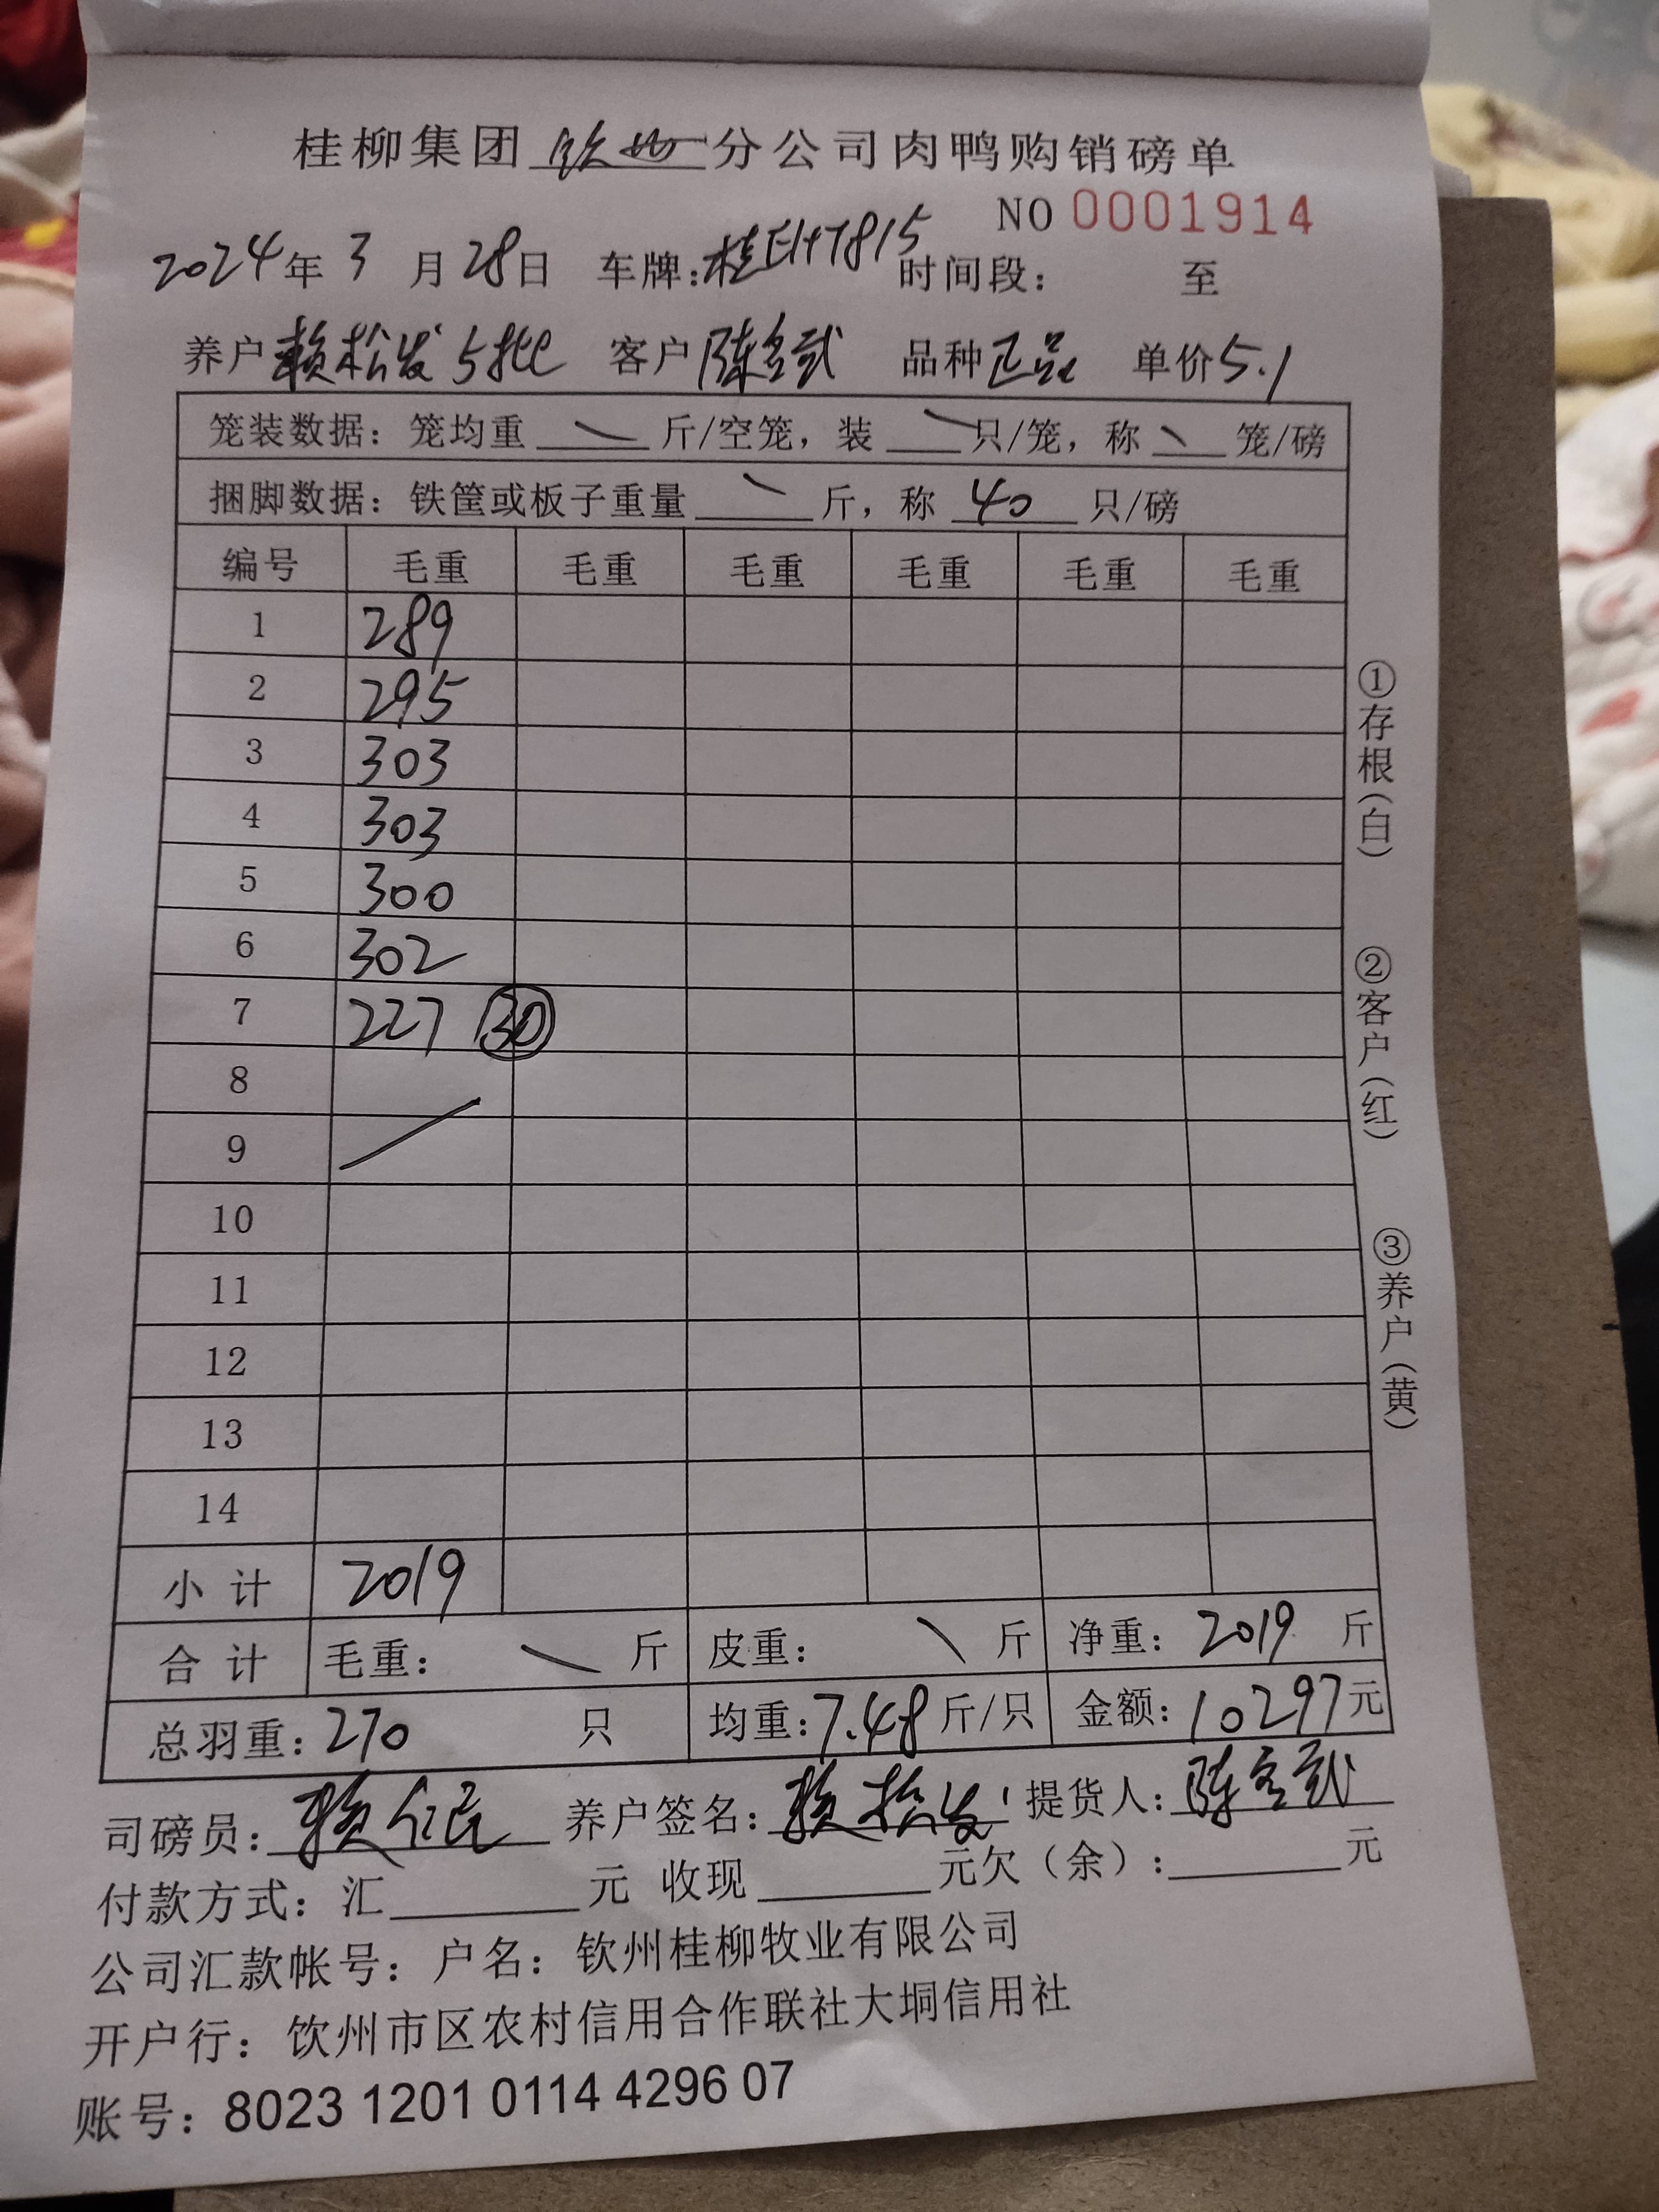 桂柳集团 钦州 分公司肉鸭购销磅单
NO 0001914
2024年 3 月 28日 车牌:桂EH7815 时间段: 至
养户 赖松发 5批 客户 陈名武 品种 正品 单价 5.1
笼装数据: 笼均重 斤/空笼, 装 只/笼, 称 笼/磅
捆脚数据: 铁筐或板子重量 斤, 称 40 只/磅
编号 毛重 毛重 毛重 毛重 毛重 毛重
1 289
2 295
3 303
4 303
5 300
6 302
7 227 30
8
9
10
11
12
13
14
小计 2019
合计 毛重: 斤 皮重: 斤 净重: 2019 斤
总羽重: 270 只 均重: 7.48 斤/只 金额: 10297元
司磅员: 赖仁民 养户签名: 赖松发 提货人: 陈名武
付款方式: 汇 元 收现 元欠(余): 元
公司汇款帐号: 户名: 钦州桂柳牧业有限公司
开户行: 饮州市区农村信用合作联社大垌信用社
账号: 8023 1201 0114 4296 07
①存根(白)
②客户(红)
③养户(黄)